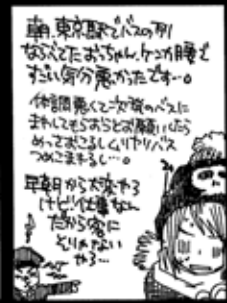 朝、東京駅でバスの列
ならべてたおっちゃん、ケンカ腰で
すごい気分悪かったです…。
体調悪くて次発のバスに
まわしてもらおうとお願いしたら
めっちゃおこるしムリヤリバス
つめこまれるし…。
早朝から大変やろ
けど仕事なん
だから客に
とりゃない
やろ…